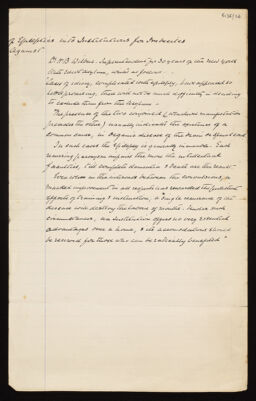 of Epileptics into Institutions for Imbeciles
Against
Dr. H.B. Wilbur. Superintendent for 30 years of the New York
State Idiot Asylum, writes as follows
Cases of idiocy, complicated with epilepsy, have appeared so
there will not be much difficulty in deciding
to exclude them from the Asylum
The presence of the two conjointly (whichever manifestation
precedes the other) usually indicates the existence of a
common cause, an organic disease of the brain or spinal cord
In such cases the Epilepsy is generally incurable. Each
recurring paroxysm impairs more & more the intellectual
faculties, till complete dementia & death are the result.
Even when in the intervals between the convulsions, a
marked improvement in all respects has rewarded the patient
efforts of training & instruction, a single recurrence of the
disease will destroy the labour of months. Under such
circumstances, an Institution offers no very essential
advantages over a home, & its accommodations should
be reserved for those who can be radically benefited"